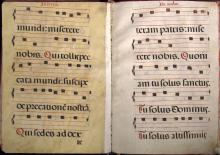 mundi: miserere
nobis. Qui tollis pec
cata mundi: suscipe
deprecationē nostrā.
Qui sedes ad dex
teram patris: mise
rere nobis. Quoni
am tu solus sanctus.
Tu solus Dominus.
Tu solus altissimus